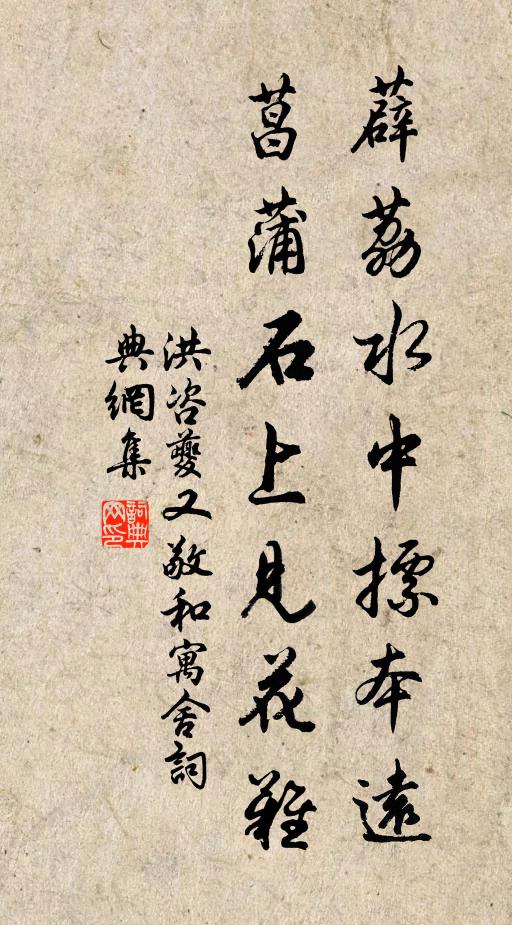 薜荔水中摽本遠
菖蒲石上見花難
洪咨夔又敬和寓舍詞
典網集
詞典網印